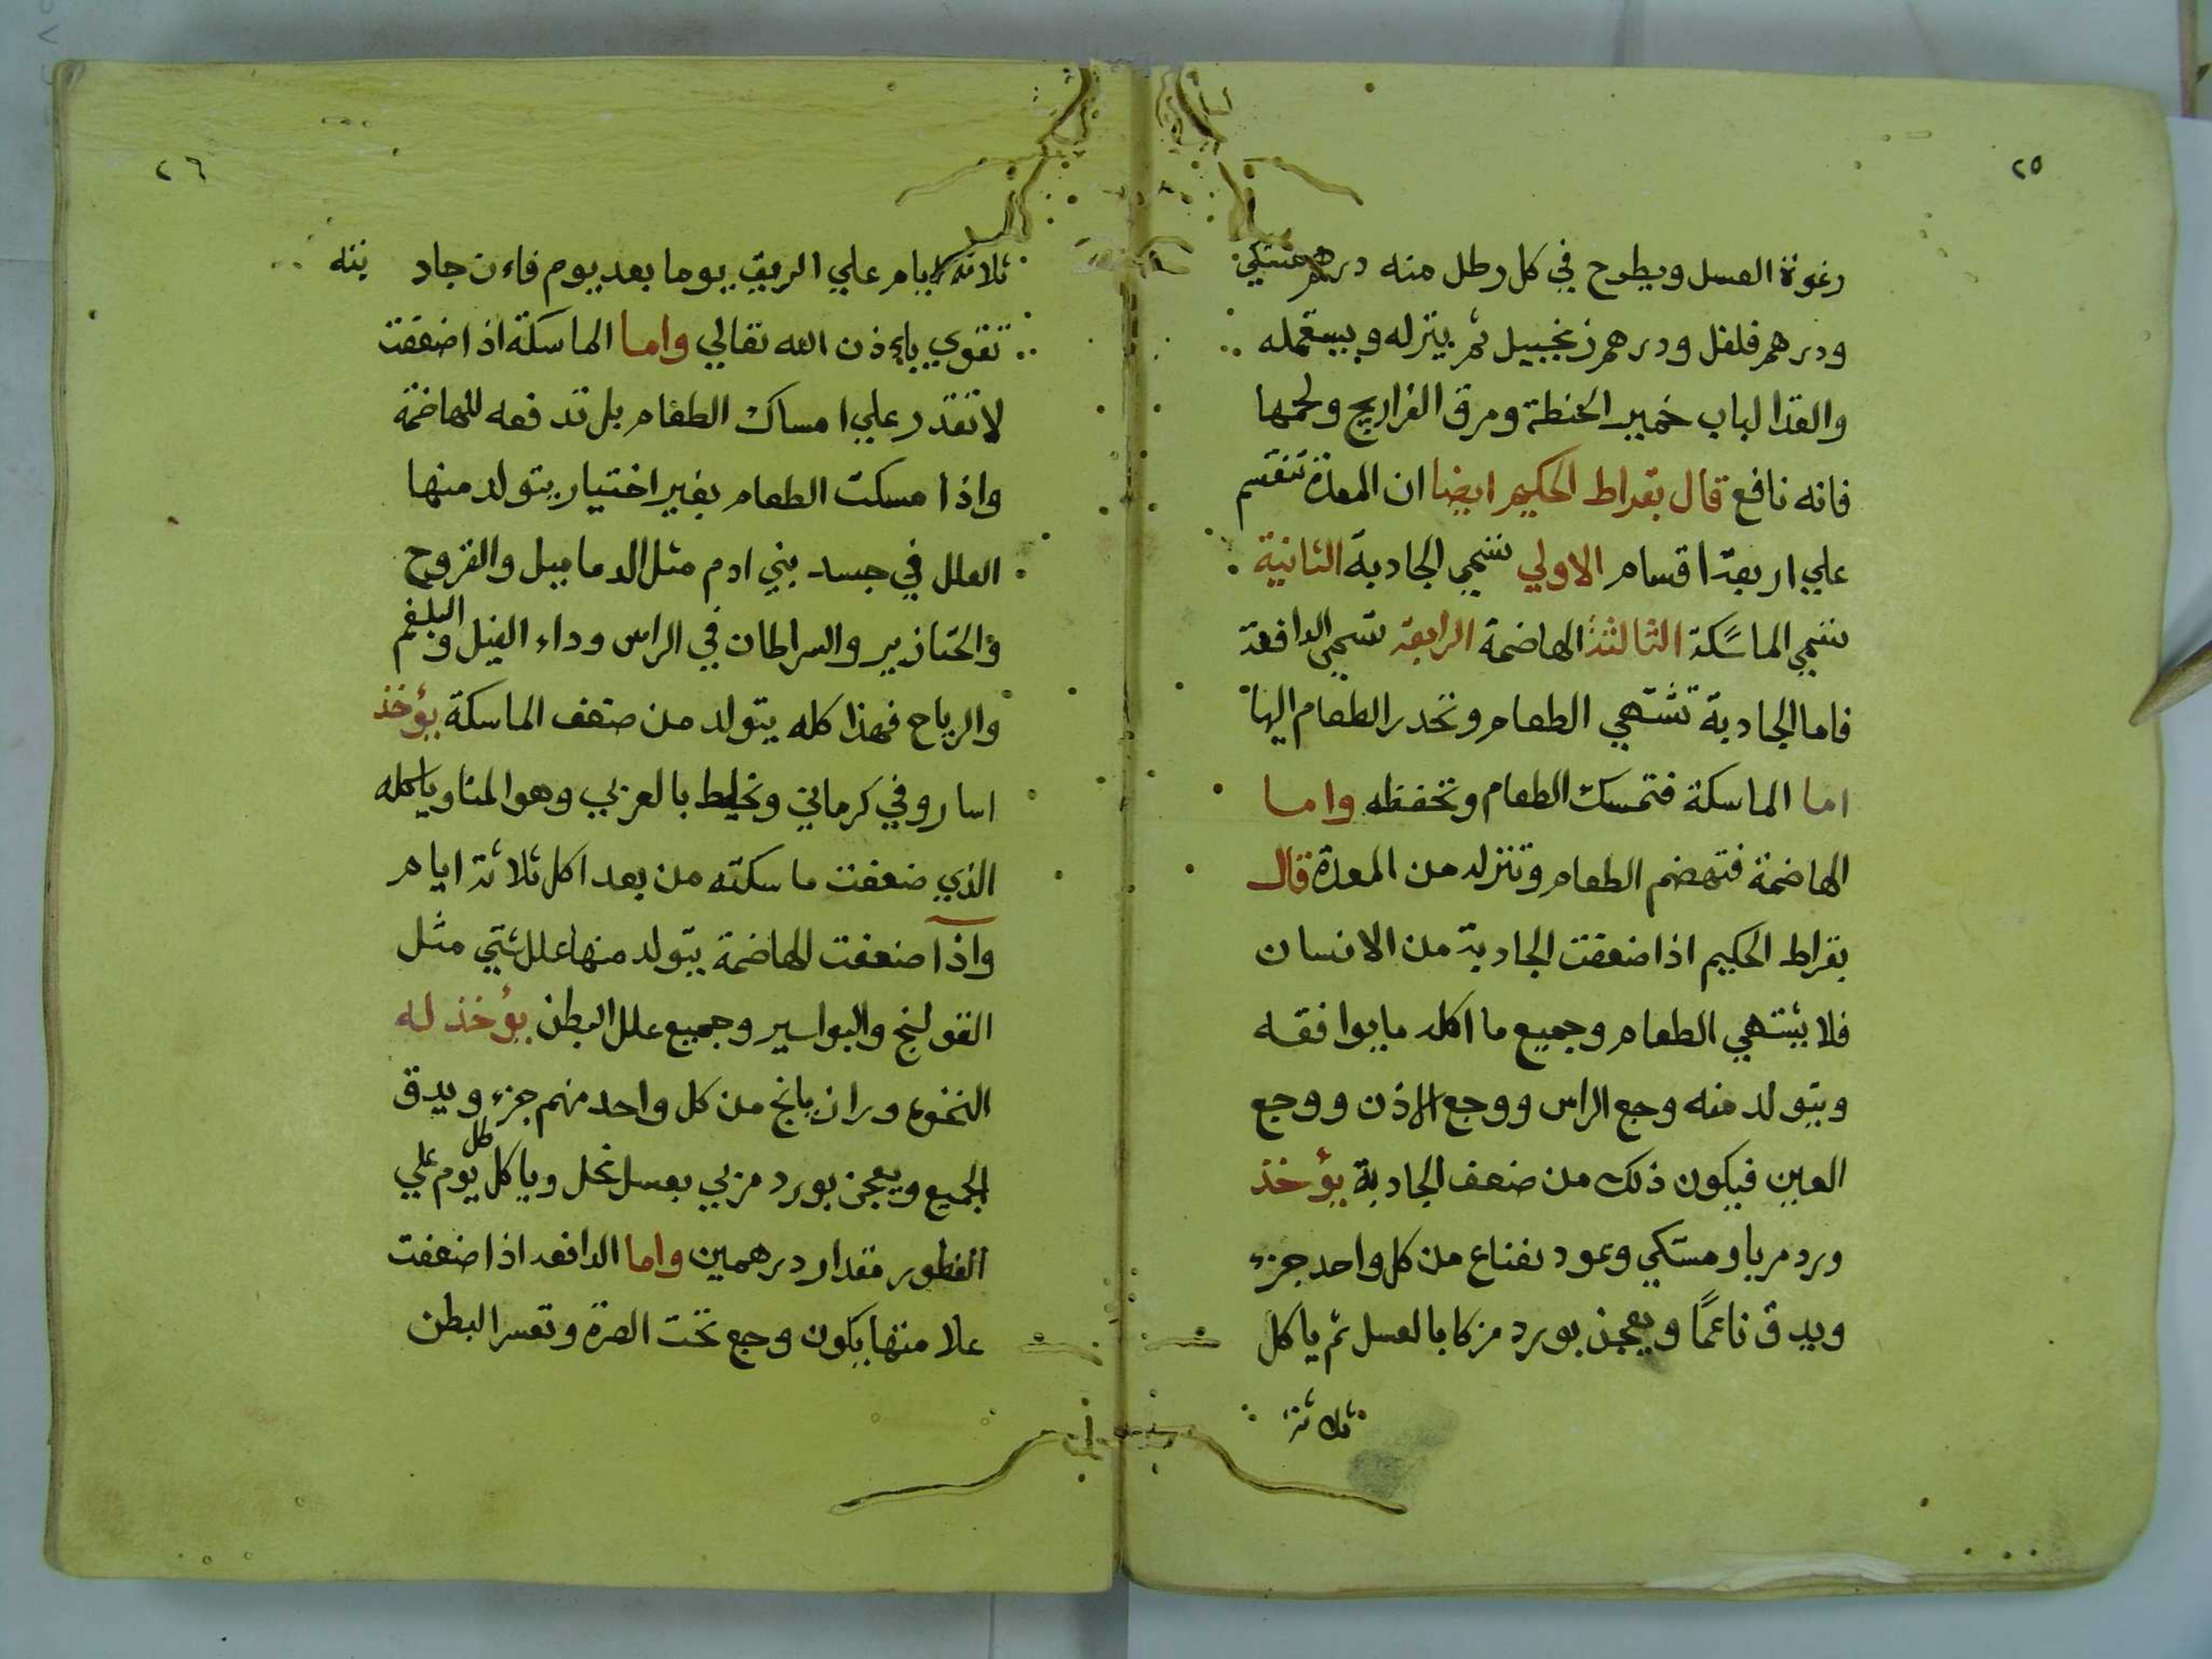 ٢٥
رغوة العسل ويطرح في كل رطل منه درهم مستكي
ودرهم فلفل ودرهم زنجبيل ثم ينزله ويستعمله
والغدا لباب خمير الحنطة ومرق الفراريج ولحمها
فانه نافع قال بقراط الحكيم ايضا ان المعدة تنقسم
علي اربعة اقسام الاولي تسمي الجادبة الثانية
تسمي الماسكة الثالثة الهاضمة الرابعة تسمي الدافعة
فاما الجادبة تشتهي الطعام وتحدر الطعام اليها
اما الماسكة فتمسك الطعام وتحفظه واما
الهاضمة فتهضم الطعام وتنزله من المعدة قال
بقراط الحكيم اذا ضعفت الجادبة من الانسان
فلا يشتهي الطعام وجميع ما اكله ما يوافقه
ويتولد منه وجع الراس ووجع الاذن ووجع
العين فيكون ذلك من ضعف الجادبة يؤخذ
ورد مربا ومستكي وعود نعناع من كل واحد جزء
ويدق ناعمًا ويعجن بورد مزكا بالعسل ثم ياكل
ثلاثة
٢٦
ثلاثة ايام علي الريق يوما بعد يوم فاءن جاد بته
تقوي باءذن الله تعالي واما الماسكة اذا ضعفت
لا تقدر علي امساك الطعام بل تدفعه للهاضمة
واذا مسكت الطعام بغير اختيار يتولد منها
العلل في جسد بني ادم مثل الدماميل والقروح
والخنازير والسراطان في الراس وداء الفيل والبلغم
والرياح فهذا كله يتولد من ضعف الماسكة يؤخذ
اساروفي كرماني وتخليط بالعربي وهو المناو ياكله
الذي ضعفت ماسكته من بعد اكل ثلاثة ايام
واذا ضعفت الهاضمة يتولد منها علل شتي مثل
القولنج والبواسير وجميع علل البطن يؤخذ له
النخوه ورازيانج من كل واحد منهم جزء ويدق
الجميع ويعجن بورد مربي بعسل نحل وياكل كل يوم علي
الفطور مقدار درهمين واما الدافعه اذا ضعفت
علا منها يكون وجع تحت الصرة وتعسر البطن